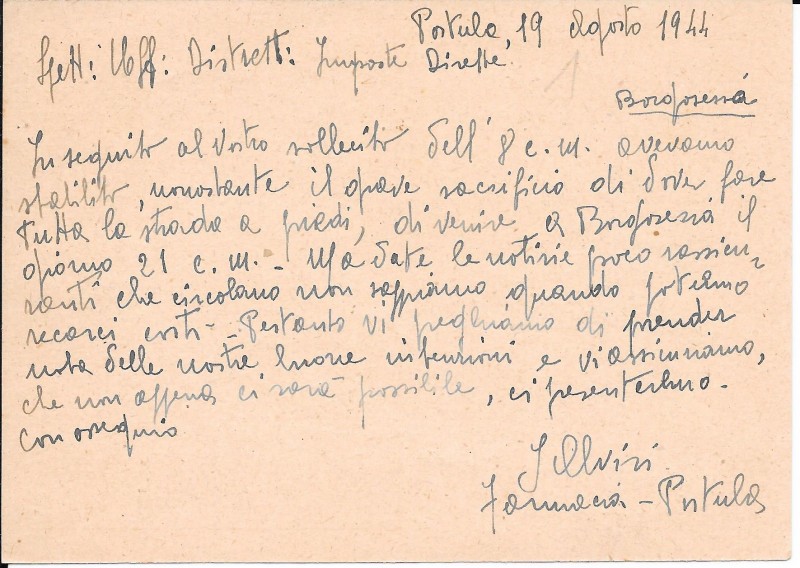 Postula, 19 Agosto 1944
Spett: Uff: Distrett: Imposte Dirette
Borgosesia
In seguito al Vostro sollecito dell'8 c.m. avevamo
stabilito, nonostante il grave sacrificio di dover fare
tutta la strada a piedi, di venire a Borgosesia il
giorno 21 c.m. - Ma date le notizie poco rassicu-
ranti che circolano non sappiamo quando potremo
recarci costì - Pertanto Vi preghiamo di prender
nota delle nostre buone intenzioni e Vi assicuriamo,
che non appena ci sarà possibile, ci presenteremo.
Con ossequio
Farmacia - Postula